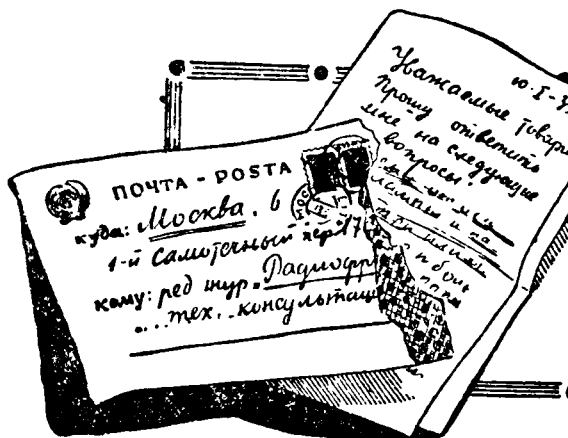 ПОЧТА - POSTA
куда: Москва, 6
1-й Самотечный пер. 17
кому: ред жур. „Радиофр
тех. консультац
10-I-3
Уважаемые товари
Прошу ответить
мне на следующие
вопросы:
и боль